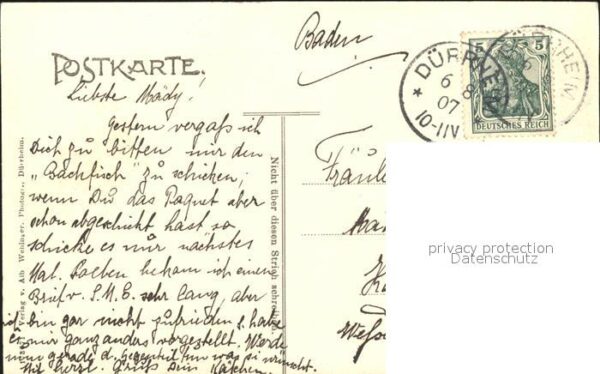 Baden
POSTKARTE.
DÜRRHEIM
6 8
07
10-11V
5 5
DEUTSCHES REICH
Liebste Mädy!
Gestern vergaß ich
Dich zu bitten mir den
"Backfisch" zu schicken;
wenn Du das Paquet aber
schon abgeschickt hast so
schicke es mir nächstes
Mal. Soeben bekam ich einen
Brief v. S.M.E. sehr lang, aber
ich bin gar nicht zufrieden s. habe
es mir ganz anders vorgestellt. Werde
nun gerade d. Gegenteil tun was sie wünscht.
Mit herzl. Gruß Dein Kätchen.
Verlag v. Alb. Photogr., Dürrheim.
Nicht über diesen Strich schreiben
Fräule
privacy protection
Datenschutz